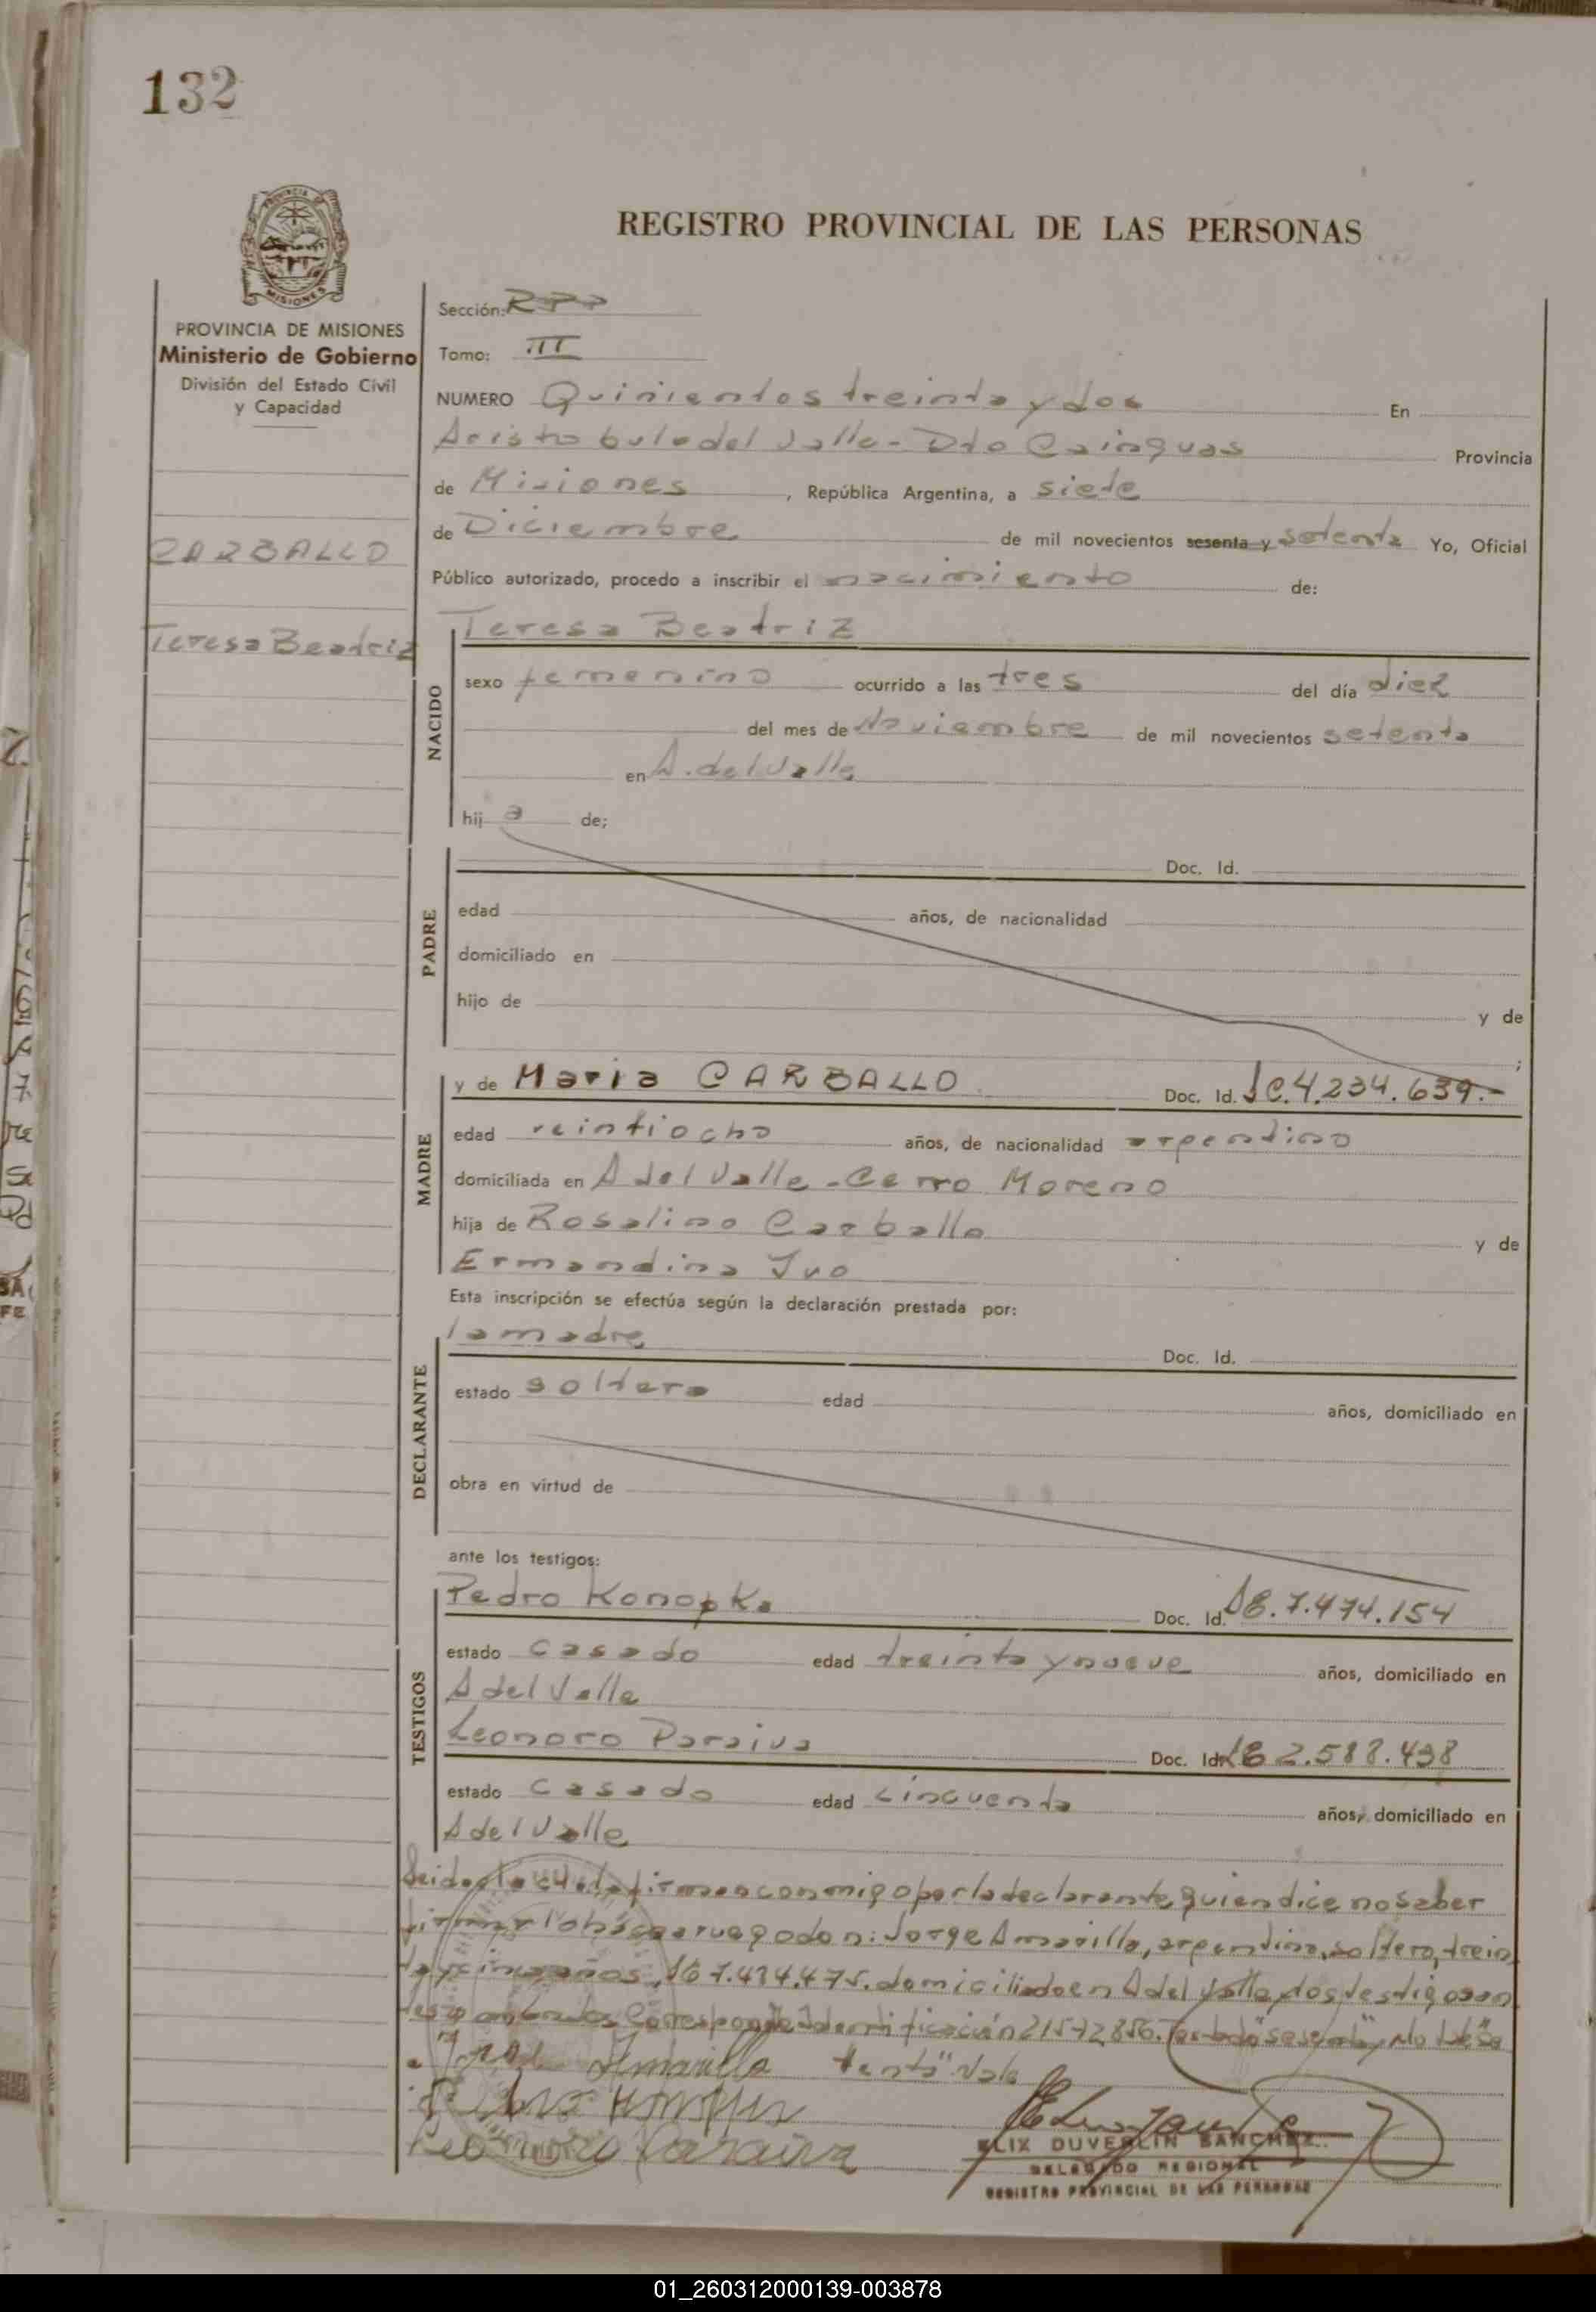 132
PROVINCIA DE
MISIONES
REGISTRO PROVINCIAL DE LAS PERSONAS
PROVINCIA DE MISIONES
Ministerio de Gobierno
División del Estado Civil
y Capacidad
CARBALLO
Teresa Beatriz
Sección: RPP
Tomo: III
NUMERO Quinientos treinta y dos En
Aristobulo del Valle - Dto Cainguas Provincia
de Misiones, República Argentina, a siete
de Diciembre de mil novecientos sesenta y setenta Yo, Oficial
Público autorizado, procedo a inscribir el nacimiento de:
NACIDO
Teresa Beatriz
sexo femenino ocurrido a las tres del día diez
del mes de Noviembre de mil novecientos setenta
en A. del Valle
hija de;
PADRE
Doc. Id.
edad años, de nacionalidad
domiciliado en
hijo de y de
;
MADRE
y de Maria CARBALLO Doc. Id. 4.234.639.-
edad veintiocho años, de nacionalidad argentina
domiciliada en A del Valle - Cerro Moreno
hija de Rosalino Carballo y de
Ermandina Ivo
Esta inscripción se efectúa según la declaración prestada por:
DECLARANTE
la madre Doc. Id.
estado soltera edad años, domiciliado en
obra en virtud de
ante los testigos:
TESTIGOS
Pedro Konopka Doc. Id. 7.474.154
estado casado edad treinta y nueve años, domiciliado en
A del Valle
Leonoro Paraiva Doc. Id. 2.588.438
estado casado edad cincuenta años, domiciliado en
A del Valle
Leida el acta la firman conmigo por la declarante quien dice no saber
firmar lo hace a ruego don: Jorge Amarilla, argentino, soltero, trein
ta y cinco años, domiciliado en A del Valle y los testigos an
tes nombrados Corresponde Identificación Testado "sesenta y" No Vale "Se
tenta" Vale
Jorge Amarilla
Pedro Konopka
Leonoro Paraiva
ELIX DUVERLIN SANCHEZ
DELEGADO REGIONAL
REGISTRO PROVINCIAL DE LAS PERSONAS
01_260312000139-003878